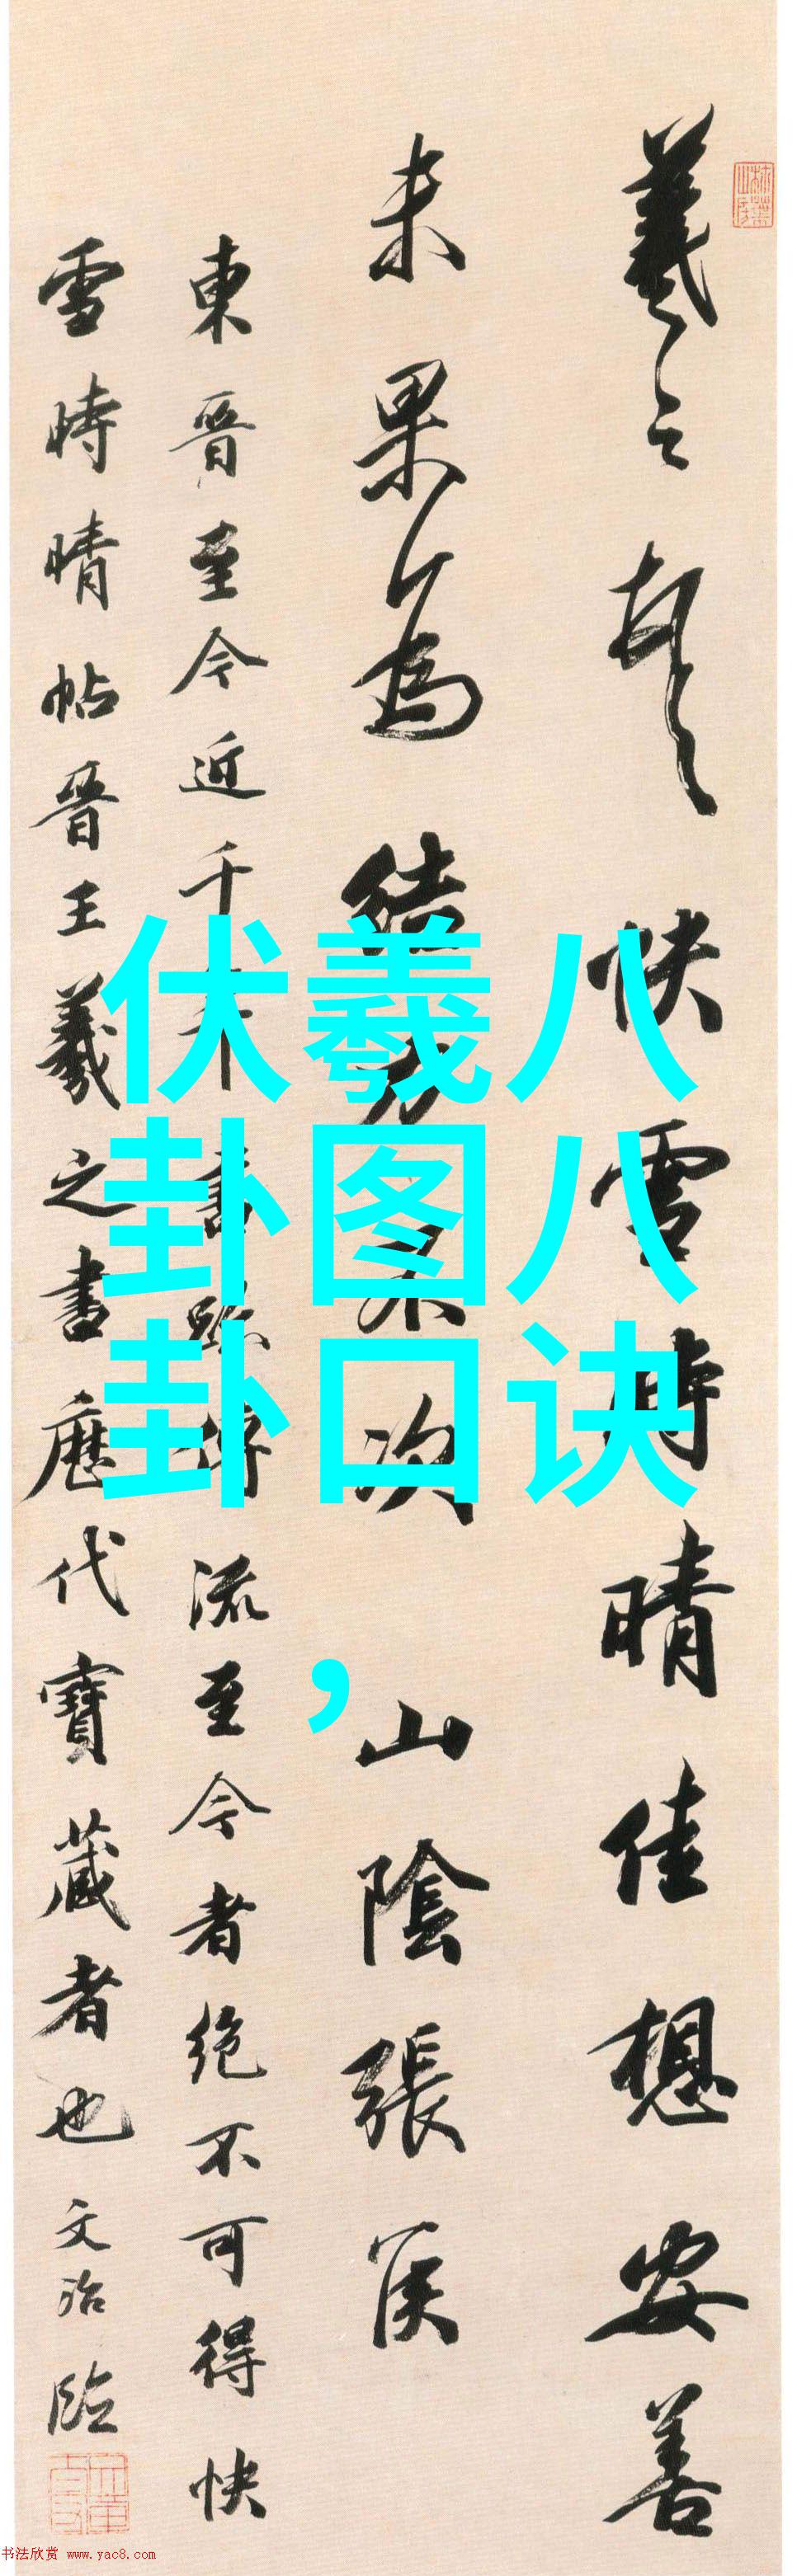 羲之頓首
快雪時晴佳想安善
未果為結力不次
山陰張侯
東晉至今近千年書跡傳流至今者絶不可得快
雪時晴帖晉王羲之書歷代寶藏者也文治臨
伏羲八
卦图八
卦口诀
，
书法欣赏 www.yac8.com